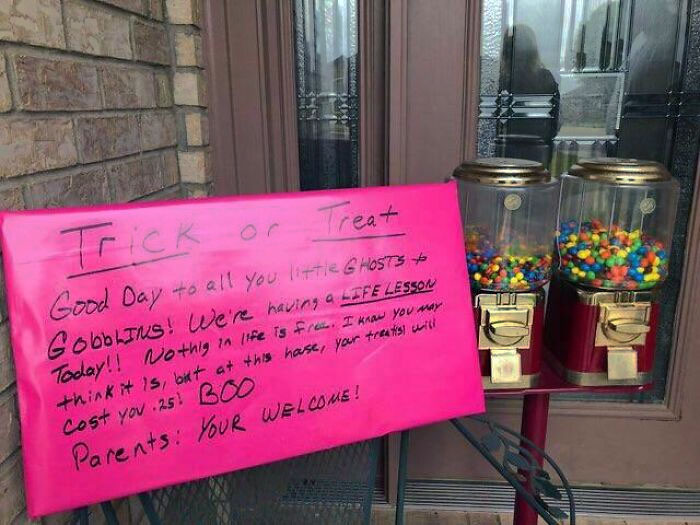 Trick or Treat
Good Day to all you little GHOSTS &
GObbLINS! We're having a LIFE LESSON
Today!! Nothig in life is free. I know you may
think it is, but at this house, your treat(s) will
cost you .25! BOO
Parents: YOUR WELCOME!